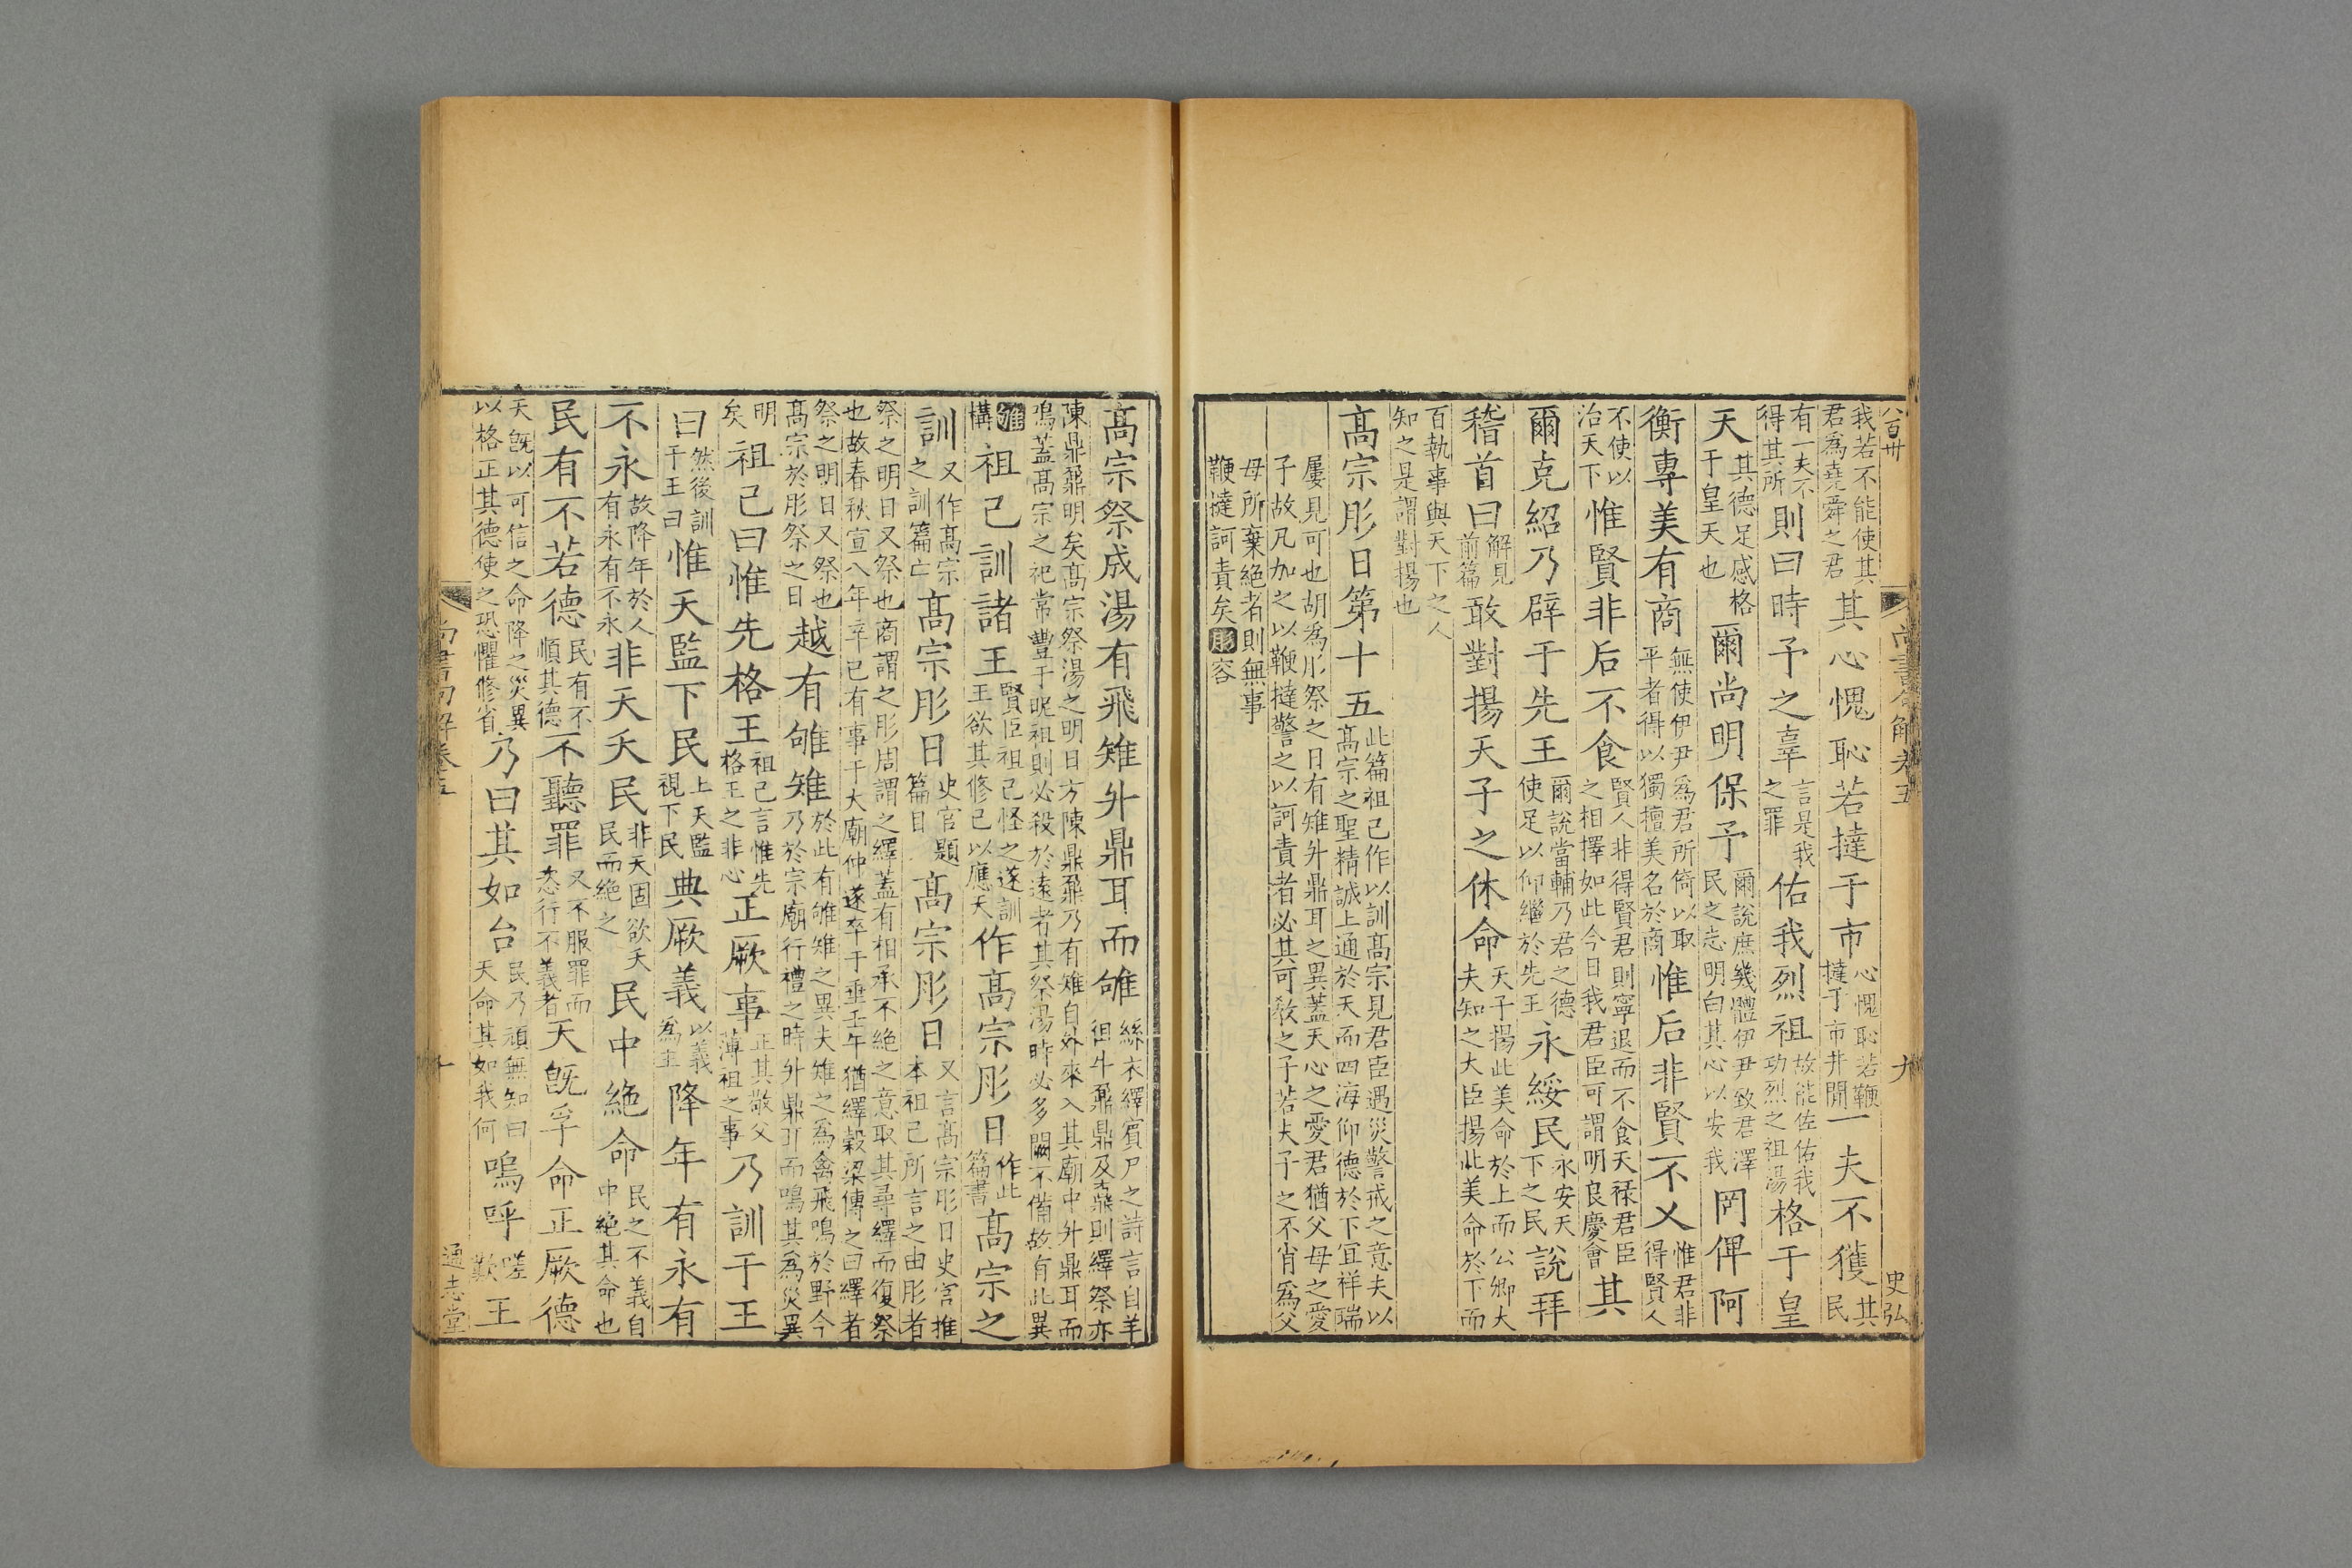 八百卅 尚書句解卷五 九 史弘
我若不能使其君爲堯舜之君其心愧恥若撻于市心愧恥若鞭撻于市井間一夫不獲其民
有一夫不得其所則曰時予之辜言是我之罪佑我烈祖故能佐佑我功烈之祖湯格于皇
天其德足感格于皇天也爾尚明保予爾說庶幾體伊尹致君澤民之志明白其心以安我罔俾阿
衡專美有商無使伊尹爲君所倚以取平者得以獨擅美名於商惟后非賢不乂惟君非得賢人
不使以治天下惟賢非后不食賢人非得賢君則寧退而不食天祿君臣之相擇如此今日我君臣可謂明良慶會其
爾克紹乃辟于先王爾說當輔乃君之德使足以仰繼於先王永綏民永安天下之民說拜
稽首曰解見前篇敢對揚天子之休命天子揚此美命於上而公卿大夫知之大臣揚此美命於下而
百執事與天下之人知之是謂對揚也
髙宗肜日第十五此篇祖己作以訓髙宗見君臣遇災警戒之意夫以髙宗之聖精誠上通於天而四海仰德於下宜祥瑞
屢見可也胡爲肜祭之日有雉升鼎耳之異蓋天心之愛君猶父母之愛子故凡加之以鞭撻警之以訶責者必其可敎之子若夫子之不肖爲父
母所棄絕者則無事鞭撻訶責矣肜容
髙宗祭成湯有飛雉升鼎耳而雊絲衣繹賓尸之詩言自羊徂牛鼐鼎及鼒則繹祭亦
陳鼎鼐明矣髙宗祭湯之明日方陳鼎鼐乃有雉自外來入其廟中升鼎耳而鳴蓋髙宗之祀常豐于昵祖則必殺於遠者其祭湯時必多闕不備故有此異
雊構祖己訓諸王賢臣祖己怪之遂訓王欲其修己以應天作髙宗肜日作此篇書髙宗之
訓又作髙宗之訓篇亡髙宗肜日史官題篇目髙宗肜日又言髙宗肜日史官推本祖己所言之由肜者
祭之明日又祭也商謂之肜周謂之繹蓋有相承不絕之意取其尋繹而復祭也故春秋宣八年辛巳有事于大廟仲遂卒于垂壬午猶繹穀梁傳之曰繹者
祭之明日又祭也髙宗於肜祭之日越有雊雉於此有雊雉之異夫雉之爲禽飛鳴於野今乃於宗廟行禮之時升鼎耳而鳴其爲災異
明矣祖己曰惟先格王祖己言惟先格王之非心正厥事正其敬父薄祖之事乃訓于王
曰然後訓于王曰惟天監下民上天監視下民典厥義以義爲主降年有永有
不永故降年於人有永有不永非天夭民非天固欲夭民而絕之民中絕命民之不義自中絕其命也
民有不若德民有不順其德不聽罪又不服罪而恣行不義者天旣孚命正厥德
天旣以可信之命降之災異以格正其德使之恐懼修省乃曰其如台民乃頑無知曰天命其如我何嗚呼嗟歎王
尚書句解卷五 十 通志堂